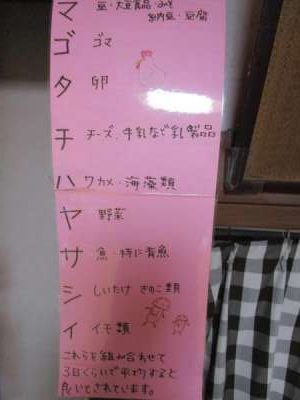 マ 豆・大豆食品・みそ
納豆・豆腐
ゴ ゴマ
タ 卵
チ チーズ、牛乳など乳製品
ハ ワカメ・海藻類
ヤ 野菜
サ 魚・特に青魚
シ しいたけ きのこ類
イ イモ類
これらを組み合わせて
3日くらいで平均すると
良いとされています。